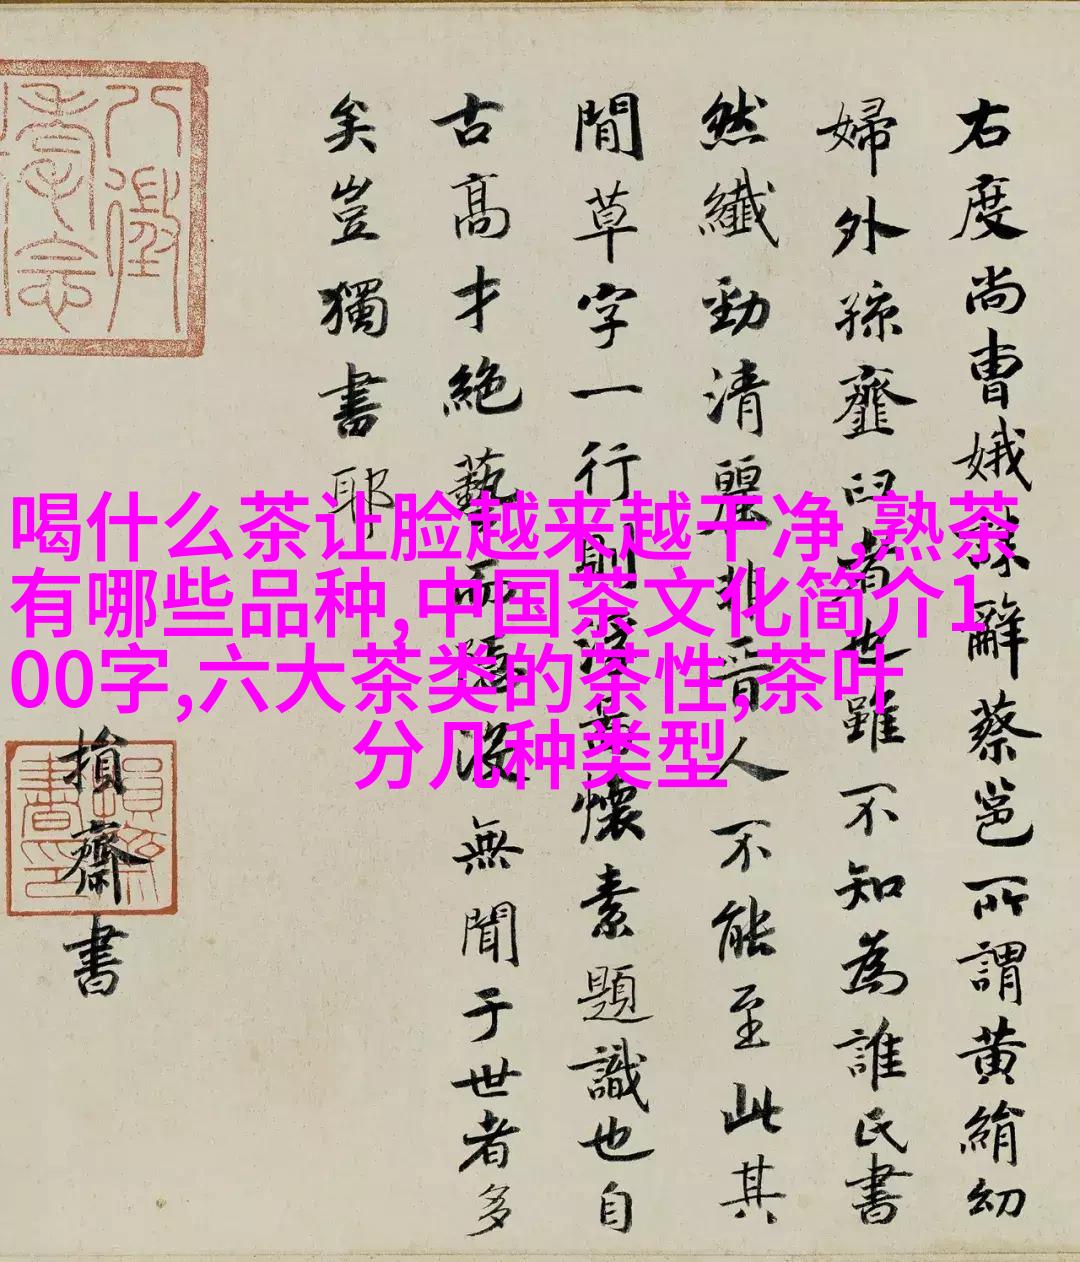 右度尚曹娥誄辭蔡邕所謂黄絹幼
婦外孫虀臼者也雖不知為誰氏書
然纖勁清麗非晉人不能至此其
間草字一行則浮圖懷素題識也自
古高才絕藝而隱沒無聞于世者多
矣豈獨書耶
損齋書
喝什么茶让脸越来越干净,熟茶
有哪些品种,中国茶文化简介1
00字,六大茶类的茶性,茶叶
分几种类型